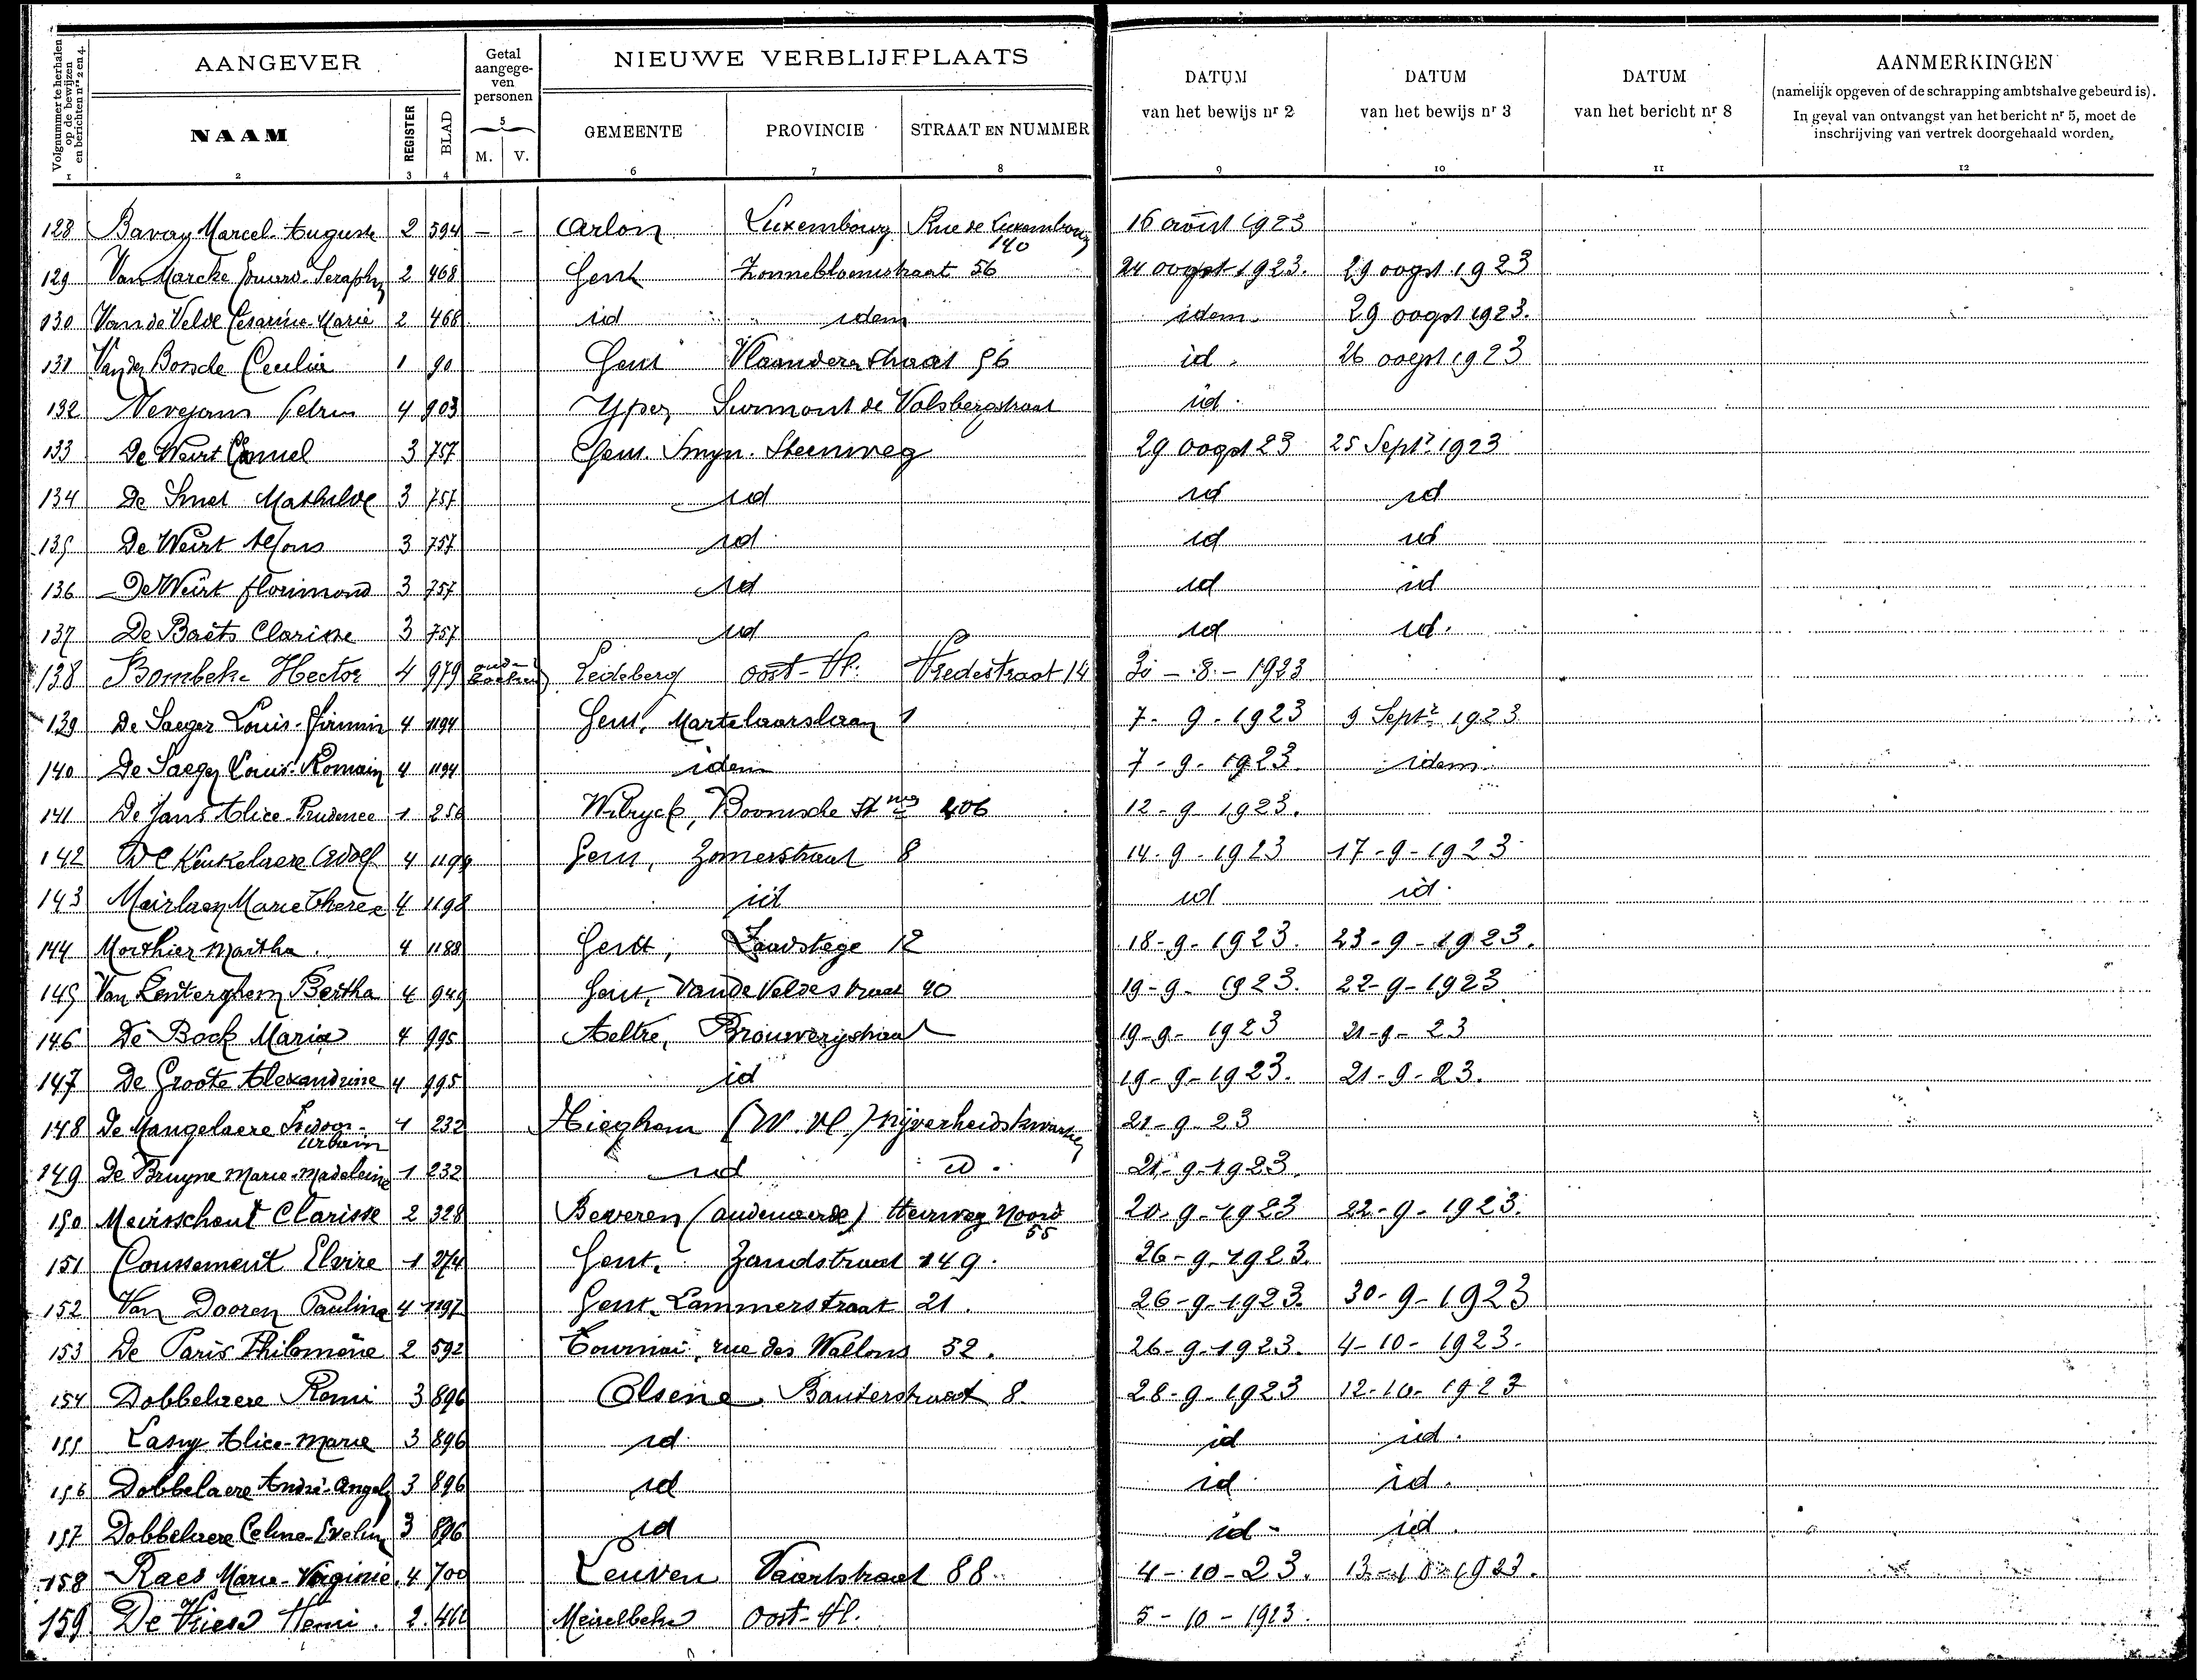 Volgnummer te herhalen op de bewijzen en berichten nrs 2 en 4.
AANGEVER
Getal aangegeven personen
NIEUWE VERBLIJFPLAATS
DATUM van het bewijs nr 2
DATUM van het bewijs nr 3
DATUM van het bericht nr 8
AANMERKINGEN
(namelijk opgeven of de schrapping ambtshalve gebeurd is).
In geval van ontvangst van het bericht nr 5, moet de inschrijving van vertrek doorgehaald worden.
NAAM REGISTER BLAD M. V. GEMEENTE PROVINCIE STRAAT EN NUMMER
1 2 3 4 5 6 7 8 9 10 11 12
128 Bavay Marcel-Auguste 2 594 - - Arlon Luxembourg Rue de Luxembourg 140 16 août 1923
129 Van Marcke Eduard-Seraphin 2 468 Gent Zonnebloemstraat 56 24 oogst 1923. 29 oogst 1923
130 Van de Velde Cesarine-Marie 2 468 id idem idem 29 oogst 1923.
131 Van den Bossche Cecilia 1 90 Gent Vlaanderenstraat 56 id. 26 oogst 1923
132 Nevejans Petrus 4 903 Yper Surmont de Volsbergstraat id.
133 De Weirt Camiel 3 757 Gent. Steenweg 29 oogst 23 25 Sept. 1923
134 De Smet Mathilde 3 757 id id id
135 De Weirt Alfons 3 757 id id id
136 De Weirt florimond 3 757 id id id
137 De Baets Clarisse 3 757 id id id.
138 Bombeke Hector 4 979 Ledeberg Oost-Vl. Vredestraat 14 30-8-1923
139 De Saeger Louis-Firmin 4 1194 Gent, Martelaarslaan 1 7-9-1923 9 Sept. 1923
140 De Saeger Louis-Romain 4 1194 idem 7-9-1923. idem
141 De Jans Alice-Prudence 1 256 Wilryck, Boomsche Stwg 406 12-9-1923.
142 De Keukelaere Adolf 4 1198 Gent, Zomerstraat 8 14-9-1923 17-9-1923
143 Meirlaen Marie Therese 4 1198 id id id.
144 Morthier Martha. 4 1188 Gent, Zandstege 12 18-9-1923. 23-9-1923.
145 Van Lenterghem Bertha 4 949 Gent, Van de Veldestraat 40 19-9-1923. 22-9-1923
146 De Bock Maria 4 995 Aeltre, Brouwerijstraat 19-9-1923 21-9-23
147 De Groote Alexandrine 4 995 id 19-9-1923. 21-9-23.
148 De Mangelaere Urbain 1 232 Tieghem (W. Vl.) Nijverheidskwartier 21-9-23
149 De Bruyne Marie-Madeleine 1 232 id id. 21-9-1923.
150 Meirsschout Clarisse 2 328 Beveren (Audenaerde) Heirweg Noord 55 20-9-1923 22-9-1923.
151 Coussement Elvire 1 274 Gent, Zandstraat 149. 26-9-1923.
152 Van Dooren Paulina 4 1197 Gent, Lammerstraat 21. 26-9-1923. 30-9-1923
153 De Paris Philomène 2 592 Tournai, rue des Wallons 52. 26-9-1923. 4-10-1923.
154 Dobbelaere Remi 3 896 Olsene, Bauterstraat 8. 28-9-1923 12-10-1923
155 Lasuy Alice-Marie 3 896 id id id.
156 Dobbelaere André-Angel 3 896 id id id.
157 Dobbelaere Celina-Evelin 3 896 id id- id.
158 Raes Marie-Virginie. 4 700 Leuven Vaartstraat 88 4-10-23. 13-10-1923.
159 De Vriese Henri. 2. 462 Meirelbeke Oost-Vl. 5-10-1923.